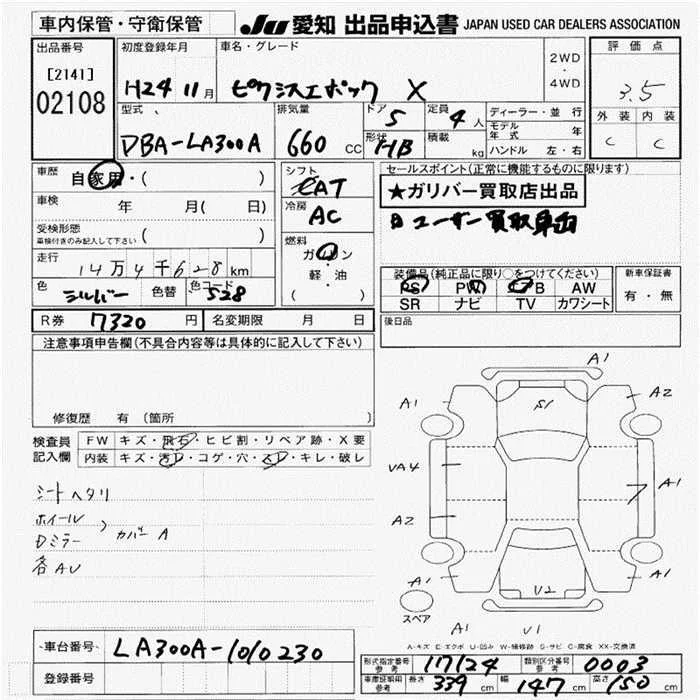 車内保管・守衛保管 JU 愛知 出品申込書 JAPAN USED CAR DEALERS ASSOCIATION
出品番号 初度登録年月 車名・グレード 2WD・4WD 評価点
[2141] H24 11月 ピクシスエポック X 3.5
02108
型式 排気量 ドア 5 定員 4人 ディーラー・並行 外装 内装
DBA-LA300A 660 CC 形状 HB 積載 kg モデル年式 年 C C
ハンドル 左・右
車歴 自家用・( ) シフト CAT セールスポイント(正常に機能するものに限ります)
車検 年 月( 日) 冷房 AC ★ガリバー買取店出品
受検形態 車検付きのみ記入して下さい ( ) ユーザー買取車出
走行 14万4千628km 燃料 ガソリン
軽・油
( )
色 シルバー 色替 色コード S28
装備品(純正品に限り○をつけてください) 新車保証書
PS PW AB AW 有・無
SR ナビ TV カワシート
R券 7320円 名変期限 月 日 後日品
注意事項申告欄(不具合内容等は具体的に記入して下さい)
修復歴 有(箇所 )
検査員記入欄 FW キズ・飛石・ヒビ割・リペア跡・X要
内装 キズ・汚レ・コゲ・穴・スレ・キレ・破レ
シートヘタリ
ホイール
Dミラー カバーA
各AU
A1
A1 S1 A2
VA4 A1
A2
A1 U2 A1
スペア
A1 U1
A-キズ E-エクボ U-凹み W-補修跡 S-サビ C-腐食 XX-交換済
車台番号 LA300A-1010230
登録番号
形式指定番号 参考 17124 類別区分番号 参考 0003
車庫証明用 参考 長さ 339 cm 幅 147 cm 高さ 150 cm